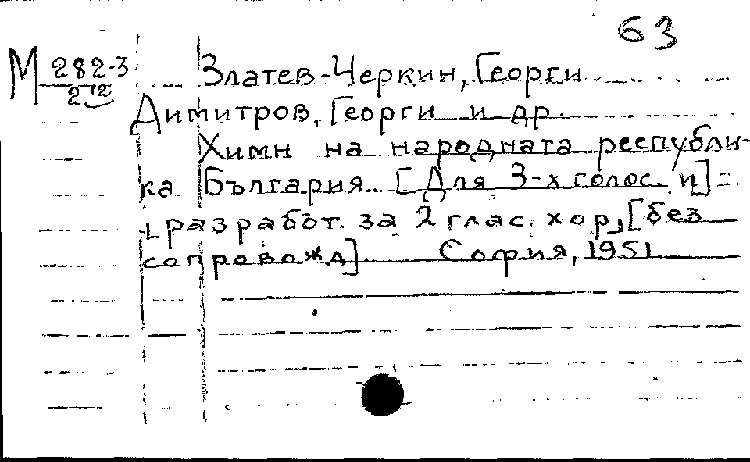 63
М 282-3
212
Златев-Черкин, Георги
Димитров, Георги и др.
Химн на народната републи-
ка България. [Для 3-х голос. и] =
разработ. за 2 глас. хор, [без
сопровожд]. София, 1951